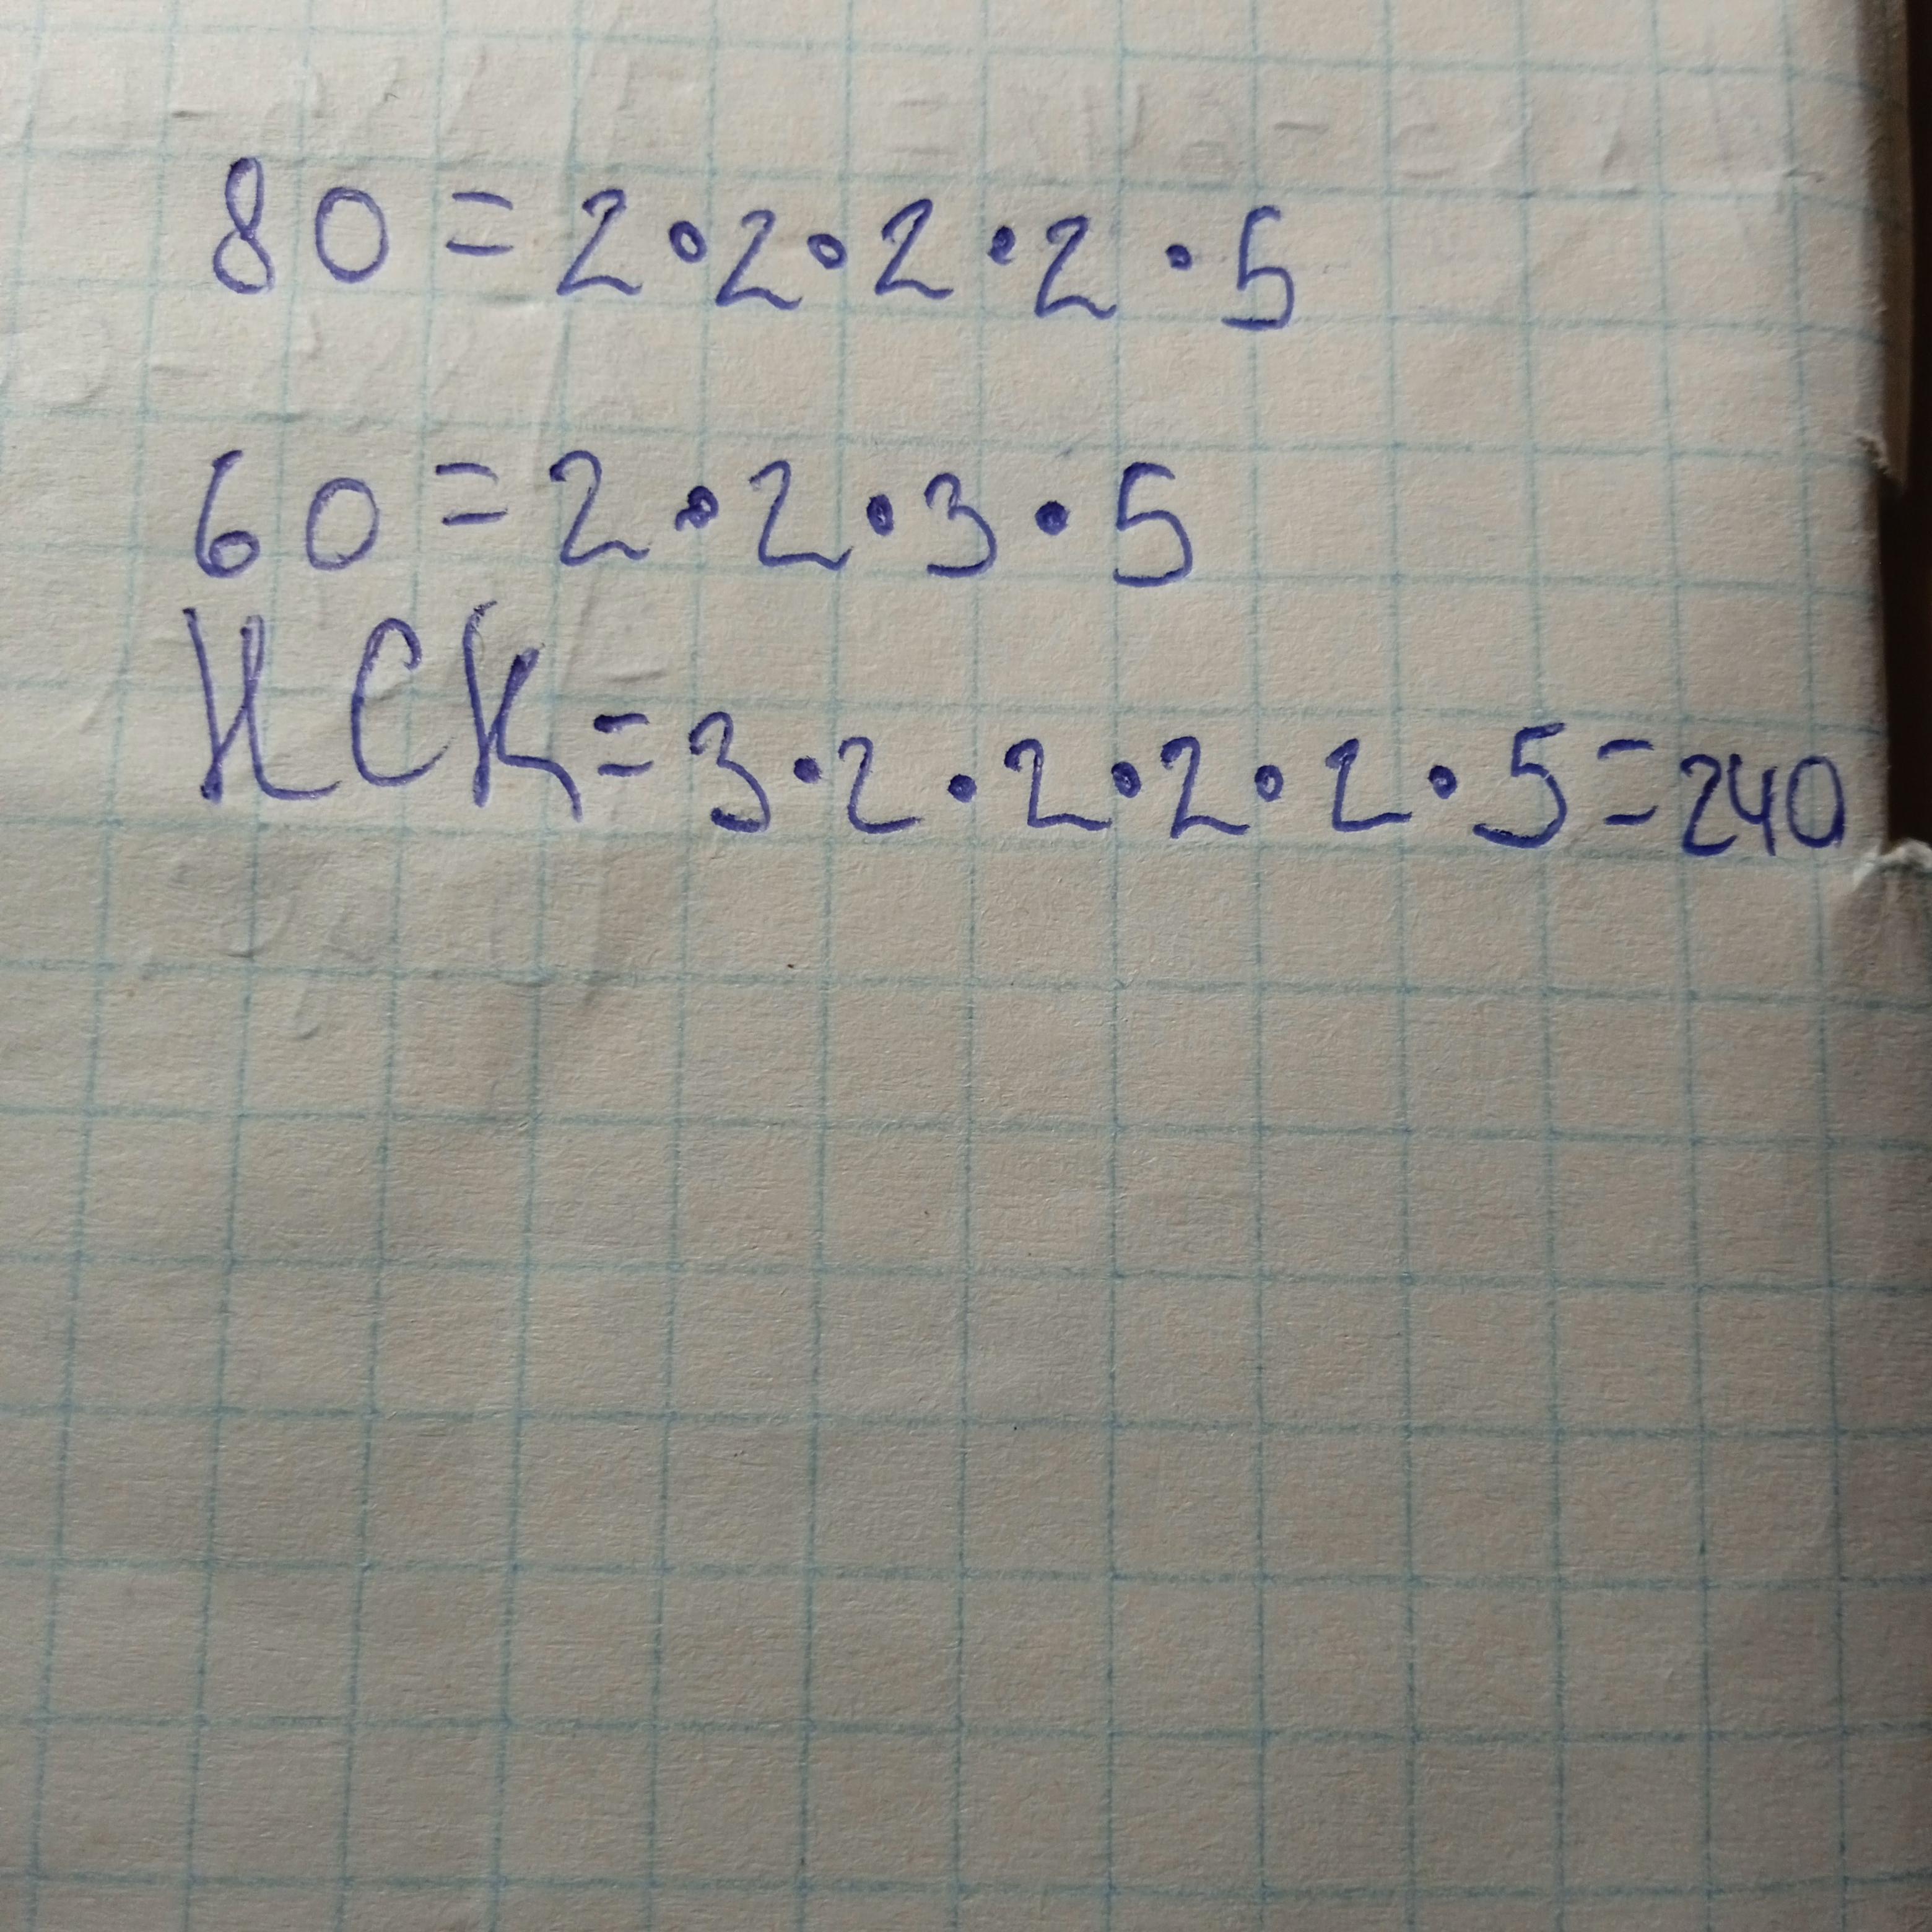 80 = 2 • 2 • 2 • 2 • 5
60 = 2 • 2 • 3 • 5
НСК = 3 • 2 • 2 • 2 • 2 • 5 = 240